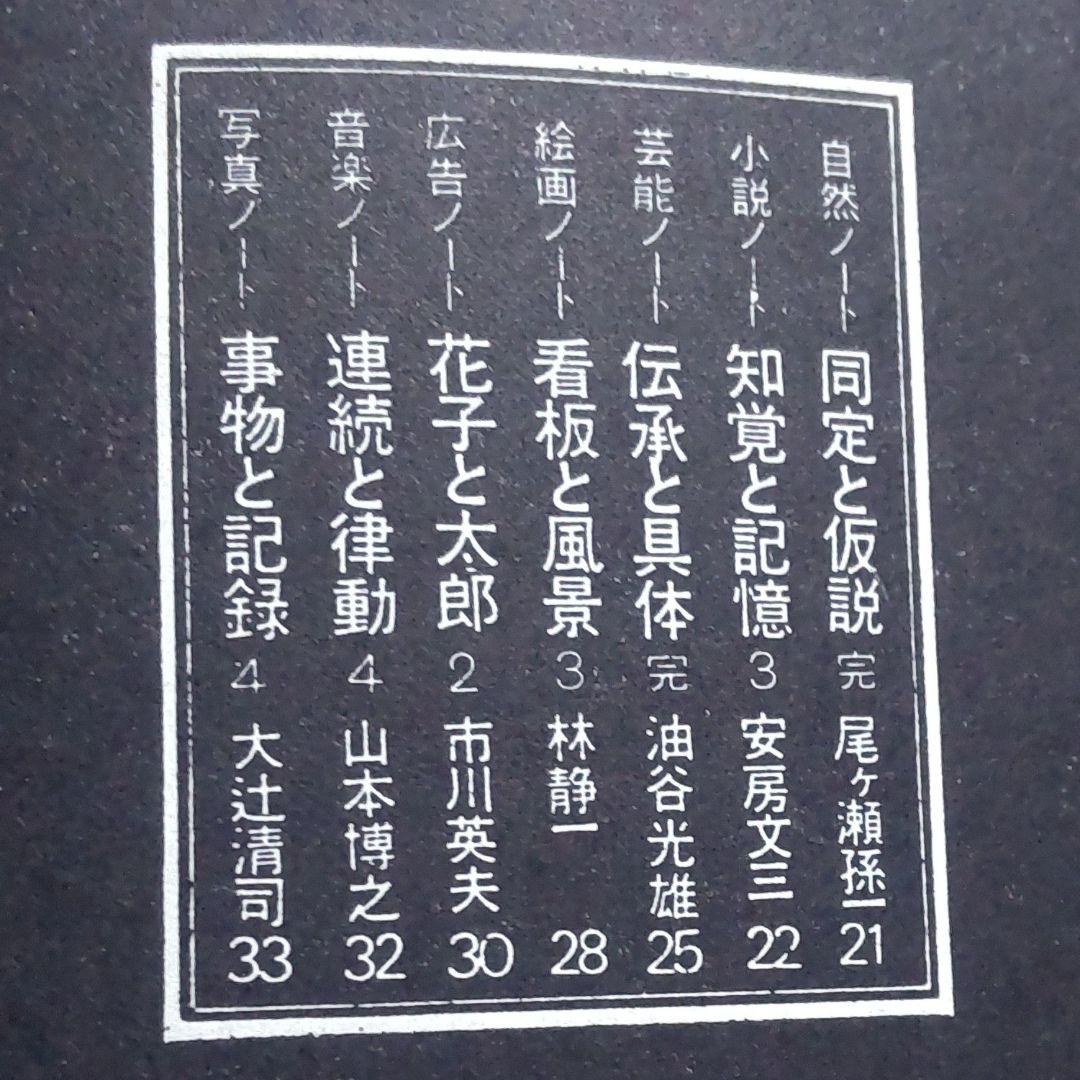 自然ノート 同定と仮説 完 尾ヶ瀬孫一 21
小説ノート 知覚と記憶 3 安房文三 22
芸能ノート 伝承と具体 完 油谷光雄 25
絵画ノート 看板と風景 3 林静一 28
広告ノート 花子と太郎 2 市川英夫 30
音楽ノート 連続と律動 4 山本博之 32
写真ノート 事物と記録 4 大辻清司 33